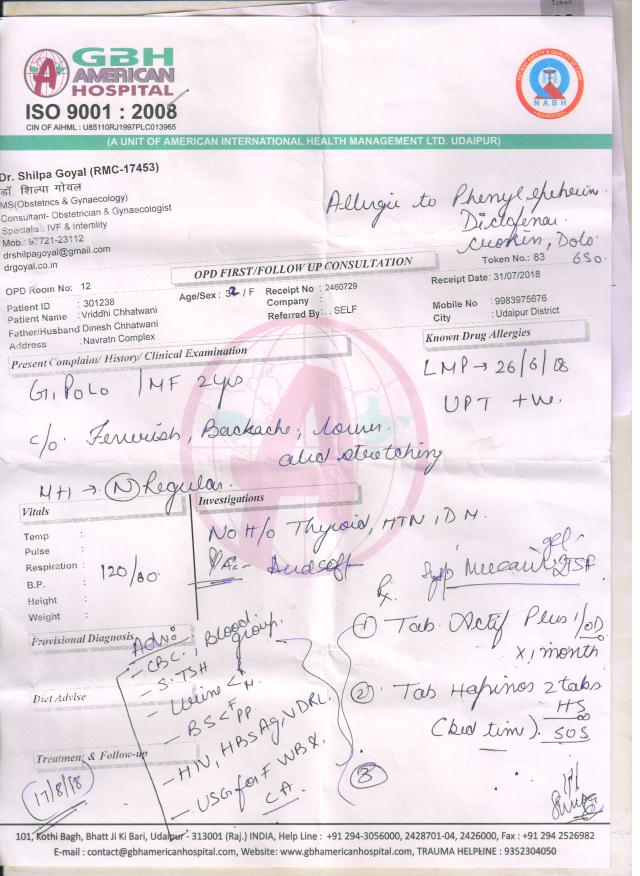 Token
GBH
AMERICAN
HOSPITAL
ISO 9001 : 2008
CIN OF AIHML : U85110RJ1997PLC013965
NABH
(A UNIT OF AMERICAN INTERNATIONAL HEALTH MANAGEMENT LTD. UDAIPUR)
Dr. Shilpa Goyal (RMC-17453)
डॉ. शिल्पा गोयल
MS(Obstetrics & Gynaecology)
Consultant- Obstetrician & Gynaecologist
Specialist: IVF & Infertility
Mob.: 97721-23112
drshilpagoyal@gmail.com
drgoyal.co.in
Allergic to
Diclofenac
Dolo
650
OPD FIRST/FOLLOW UP CONSULTATION
Token No.: 83
OPD Room No: 12
Receipt Date: 31/07/2018
Patient ID : 301238
Age/Sex : 32 / F
Receipt No : 2460729
Patient Name : Vriddhi Chhatwani
Company :
Mobile No : 9983975676
Father/Husband Dinesh Chhatwani
Referred By : SELF
City : Udaipur District
Address : Navratn Complex
Present Complain/ History/ Clinical Examination
Known Drug Allergies
G1P0L0 / MF 2 yrs
LMP → 26/6/18
UPT +ve
c/o. Feverish, Backache, lower
abd stretching
MH → N Regular
Vitals
Investigations
No H/o Thyroid, HTN, DM
P/A:- Abd soft
Temp :
Pulse :
Respiration :
B.P. : 120/80
Height :
Weight :
Rx
Syp gel 2TSF
① Tab. Actif Plus 1 OD
x 1 month
② Tab 2 tabs
HS
(bed time). SOS
③
Provisional Diagnosis
Adv:
- CBC, Blood group.
- S.TSH
- Urine < R M
- BS < F PP
- HIV, HBsAg, VDRL
- USG for FWB &
CA
Diet Advise
Treatment & Follow-up
17/8/18
101, Kothi Bagh, Bhatt Ji Ki Bari, Udaipur - 313001 (Raj.) INDIA, Help Line : +91 294-3056000, 2428701-04, 2426000, Fax : +91 294 2526982
E-mail : contact@gbhamericanhospital.com, Website: www.gbhamericanhospital.com, TRAUMA HELPLINE : 9352304050